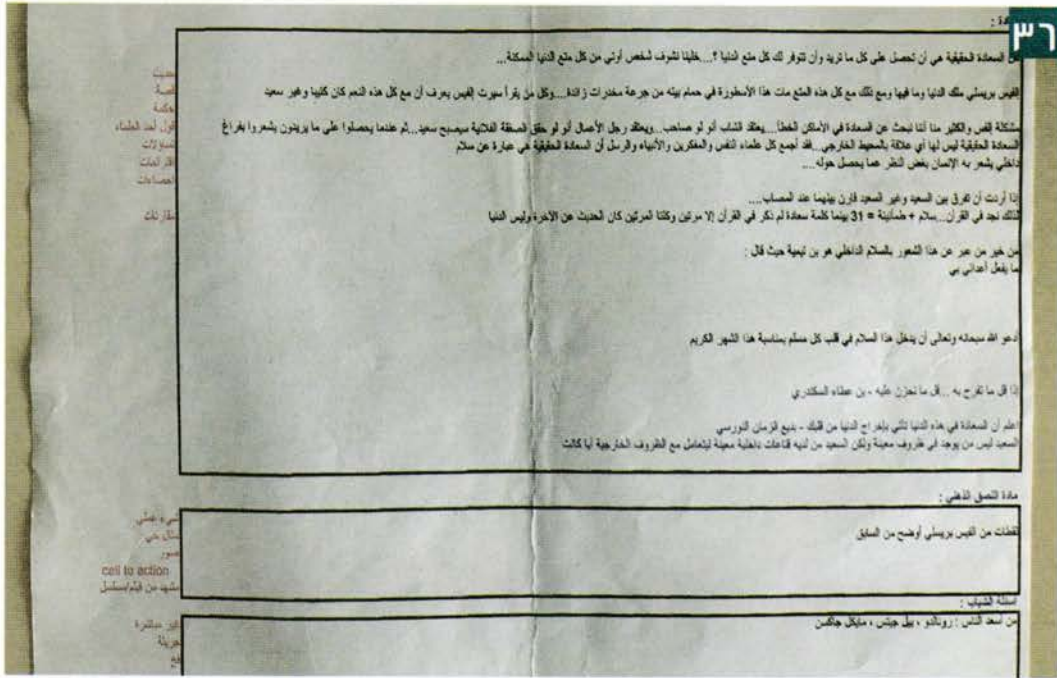 ٣٦
المادة :
هل السعادة الحقيقية هي أن تحصل على كل ما تريد وأن تتوفر لك كل متع الدنيا ؟....خلينا نشوف شخص أوتي من كل متع الدنيا الممكنة...
الفيس بريسلي ملك الدنيا وما فيها ومع ذلك مع كل هذه المتع مات هذا الأسطورة في حمام بيته من جرعة مخدرات زائدة....وكل من يقرأ سيرت إلفيس يعرف أن مع كل هذه النعم كان كئيبا وغير سعيد
مشكلة إلفس والكثير منا أننا نبحث عن السعادة في الأماكن الخطأ....يعتقد الشاب أنو لو صاحب...ويعتقد رجل الأعمال أنو لو حقق الصفقة الفلانية سيصبح سعيد...ثم عندما يحصلوا على ما يريدون يشعروا بفراغ
السعادة الحقيقية ليس لها أي علاقة بالمحيط الخارجي...فقد أجمع كل علماء النفس والمفكرين والأنبياء والرسل أن السعادة الحقيقية هي عبارة عن سلام
داخلي يشعر به الإنسان بغض النظر عما يحصل حوله....
إذا أردت أن تفرق بين السعيد وغير السعيد قارن بينهما عند المصاب....
لذلك نجد في القرآن...سلام + طمأنينة = 31 بينما كلمة سعادة لم تذكر في القرآن إلا مرتين وكلتا المرتين كان الحديث عن الآخرة وليس الدنيا
من خير من عبر عن هذا الشعور بالسلام الداخلي هو بن تيمية حيث قال :
ما يفعل أعدائي بي
أدعو الله سبحانه وتعالى أن يدخل هذا السلام في قلب كل مسلم بمناسبة هذا الشهر الكريم
إذا قل ما تفرح به ...قل ما تحزن عليه - بن عطاء السكندري
اعلم أن السعادة في هذه الدنيا تأتي بإخراج الدنيا من قلبك - بديع الزمان النورسي
السعيد ليس من يوجد في ظروف معينة ولكن السعيد من لديه قناعات داخلية معينة ليتعامل مع الظروف الخارجية أيا كانت
حديث
قصة
حكمة
قول أحد العلماء
تساؤلات
اقتراحات
احصاءات
مقارنات
مادة النسق الذهني :
لقطات من الفيس بريسلي أوضح من السابق
شيء عملي
مثال حي
صور
call to action
مشهد من فيلم/مسلسل
أسئلة الشباب :
من أسعد الناس : رونالدو ، بيل جيتس ، مايكل جاكسن
غير مباشرة
جريئة
فخ